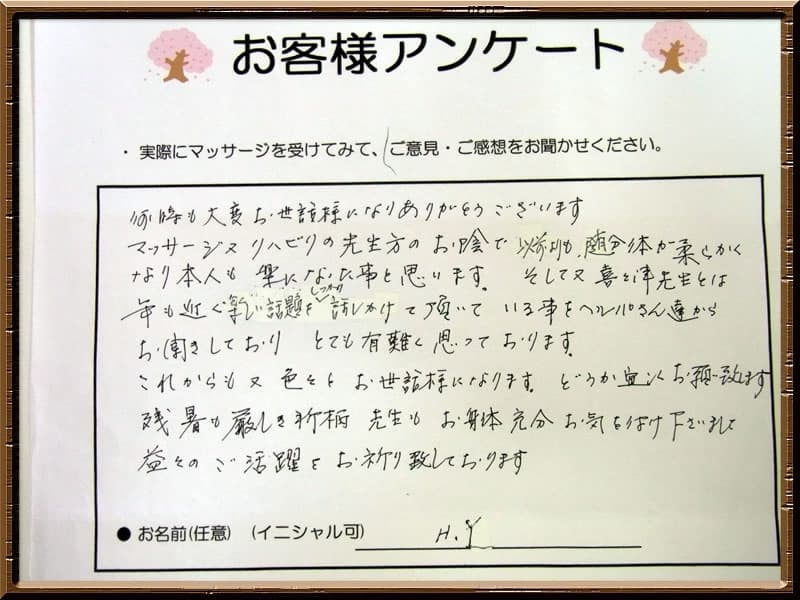 お客様アンケート
・実際にマッサージを受けてみて、ご意見・ご感想をお聞かせください。
何時も大変お世話様になりありがとうございます
マッサージ又リハビリの先生方のお陰で以前よりも、随分体が柔らかく
なり本人も楽になった事と思います。そして又喜々津先生とは
年も近く楽しい話題をしっかり話しかけて頂いている事をヘルパさん達から
お聞きしており とても有難く思っております。
これからも又色々とお世話様になります。どうか宜しくお願い致します
残暑も厳しき折柄 先生もお身体充分お気を付け下さいまして
益々のご活躍をお祈り致しております
●お名前(任意) (イニシャル可) H.Y